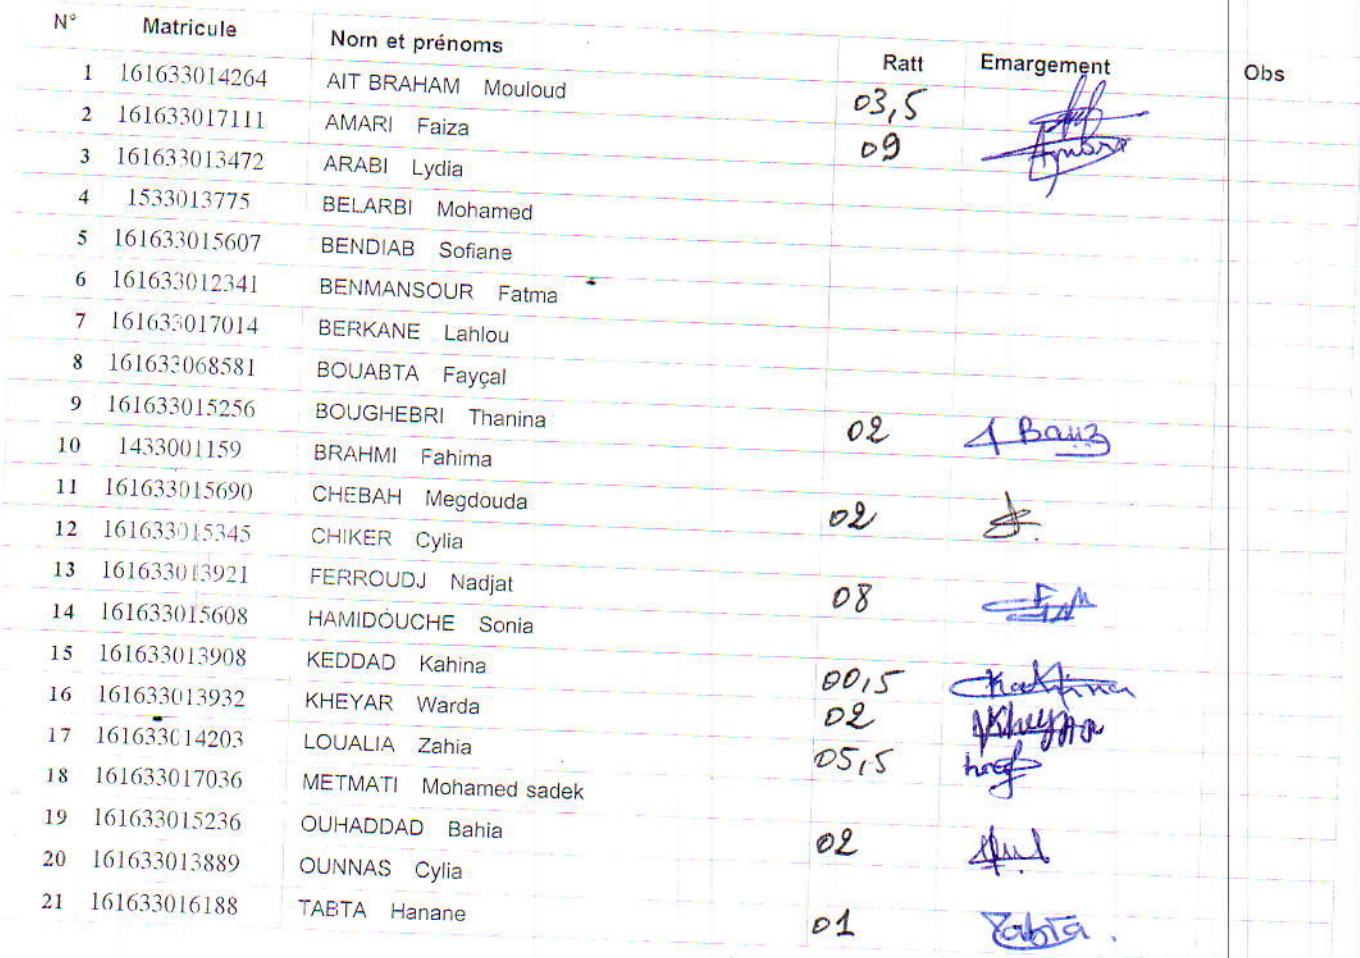 N° Matricule Nom et prénoms Ratt Emargement Obs
1 161633014264 AIT BRAHAM Mouloud 03,5
2 161633017111 AMARI Faiza 09
3 161633013472 ARABI Lydia
4 1533013775 BELARBI Mohamed
5 161633015607 BENDIAB Sofiane
6 161633012341 BENMANSOUR Fatma
7 161633017014 BERKANE Lahlou
8 161633068581 BOUABTA Fayçal
9 161633015256 BOUGHEBRI Thanina 02
10 1433001159 BRAHMI Fahima
11 161633015690 CHEBAH Megdouda 02
12 161633015345 CHIKER Cylia
13 161633013921 FERROUDJ Nadjat 08
14 161633015608 HAMIDOUCHE Sonia
15 161633013908 KEDDAD Kahina 00,5 Kahina
16 161633013932 KHEYAR Warda 02 Kheyar
17 161633014203 LOUALIA Zahia 05,5
18 161633017036 METMATI Mohamed sadek
19 161633015236 OUHADDAD Bahia 02
20 161633013889 OUNNAS Cylia
21 161633016188 TABTA Hanane 01 Tabta.